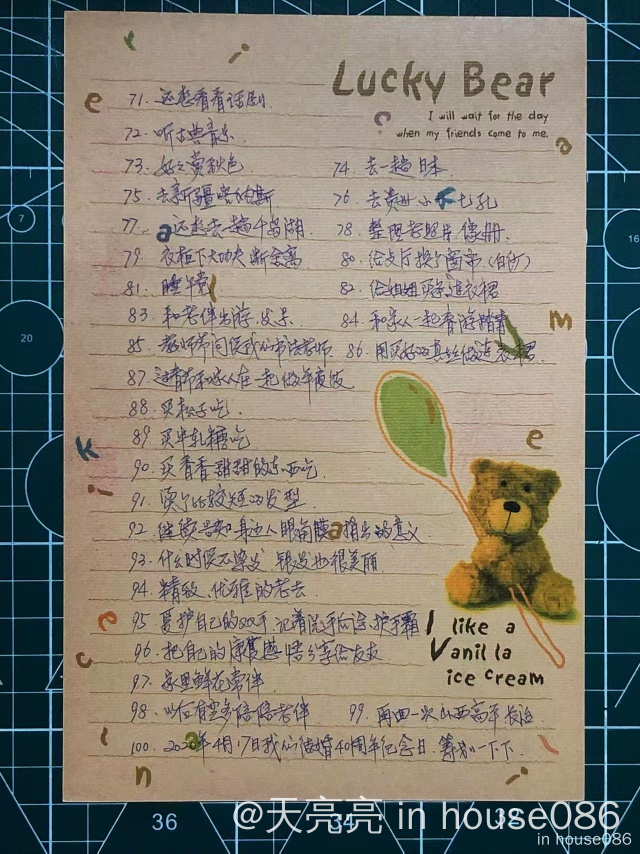 Lucky Bear
I will wait for the day
when my friends come to me.
71. 还想看看话剧
72. 听古典音乐
73. 好好赏秋色
74. 去一趟日本
75. 去新疆喀纳斯
76. 去贵州小七孔
77. 还想去一趟千岛湖
78. 整理老照片像册
79. 衣柜下大功夫断舍离
80. 给点厅换个窗帘(白色)
81. 睡午觉
82. 给姐姐买条连衣裙
83. 和老伴出游
84. 和家人一起春游踏青
85. 教师节问候我们书法老师
86. 用买好的真丝做连衣裙
87. 过春节和家人在一起做年夜饭
88. 买松子吃
89. 买牛轧糖吃
90. 买香香甜甜的东西吃
91. 换个比较短的发型
92. 继续告知身边人捐出的意义
93. 什么时候不染发 银发也很美丽
94. 精致、优雅的老去
95. 爱护自己的双手 记着洗手后涂护手霜
96. 把自己的康复感悟分享给友友
97. 家里鲜花常伴
98. 以后有空多陪陪老伴
99. 再回一次山西高平 长治
100. 2020年4月17日我们结婚40周年纪念日. 筹划一下下
I like a
Vanilla
ice cream
36
34
20
7
16
@天亮亮 in house086
in house086